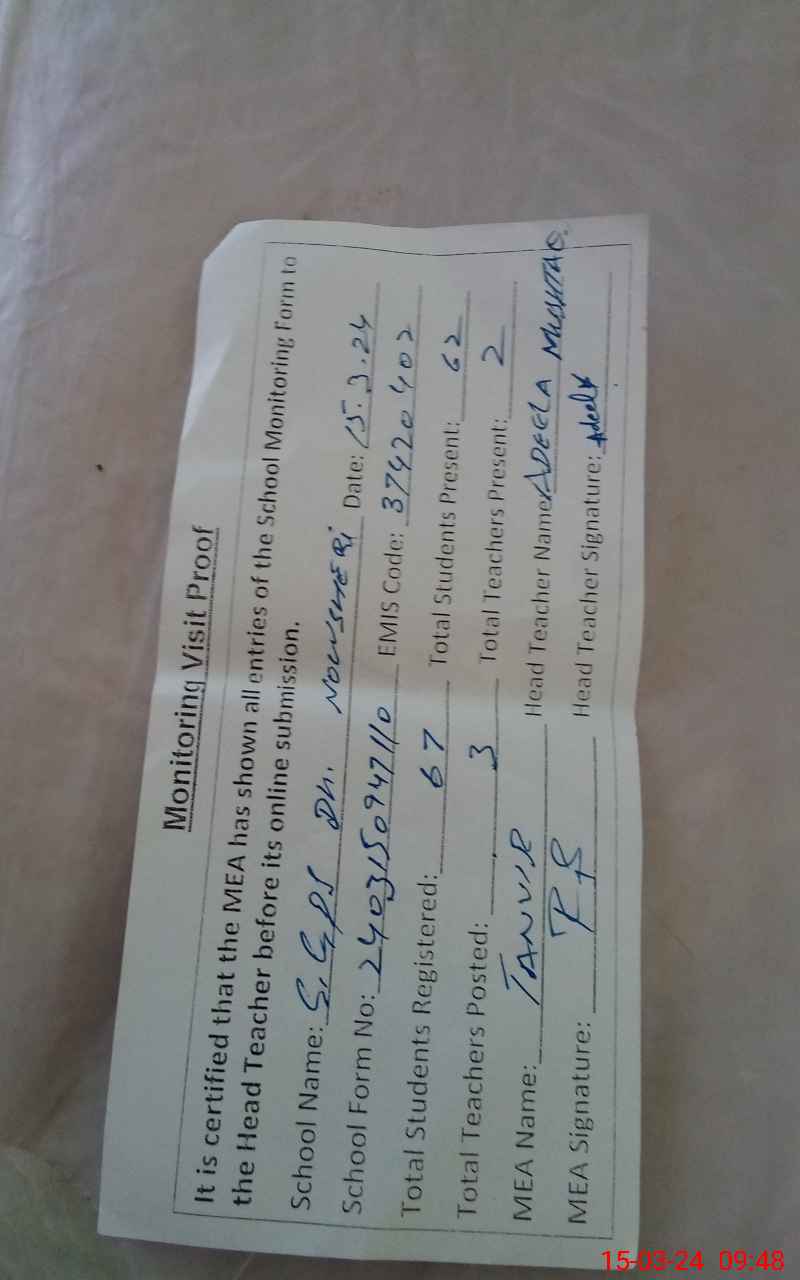 Monitoring Visit Proof
It is certified that the MEA has shown all entries of the School Monitoring Form to
the Head Teacher before its online submission.
School Name: S.GPS DH. NOWSHERI Date: 15.3.24
School Form No: 2403150947110 EMIS Code: 37420402
Total Students Registered: 67 Total Students Present: 62
Total Teachers Posted: 3 Total Teachers Present: 2
MEA Name: TANVIR Head Teacher Name: ADEELA MUSHTAQ
MEA Signature: Head Teacher Signature: Adeela
15-03-24 09:48